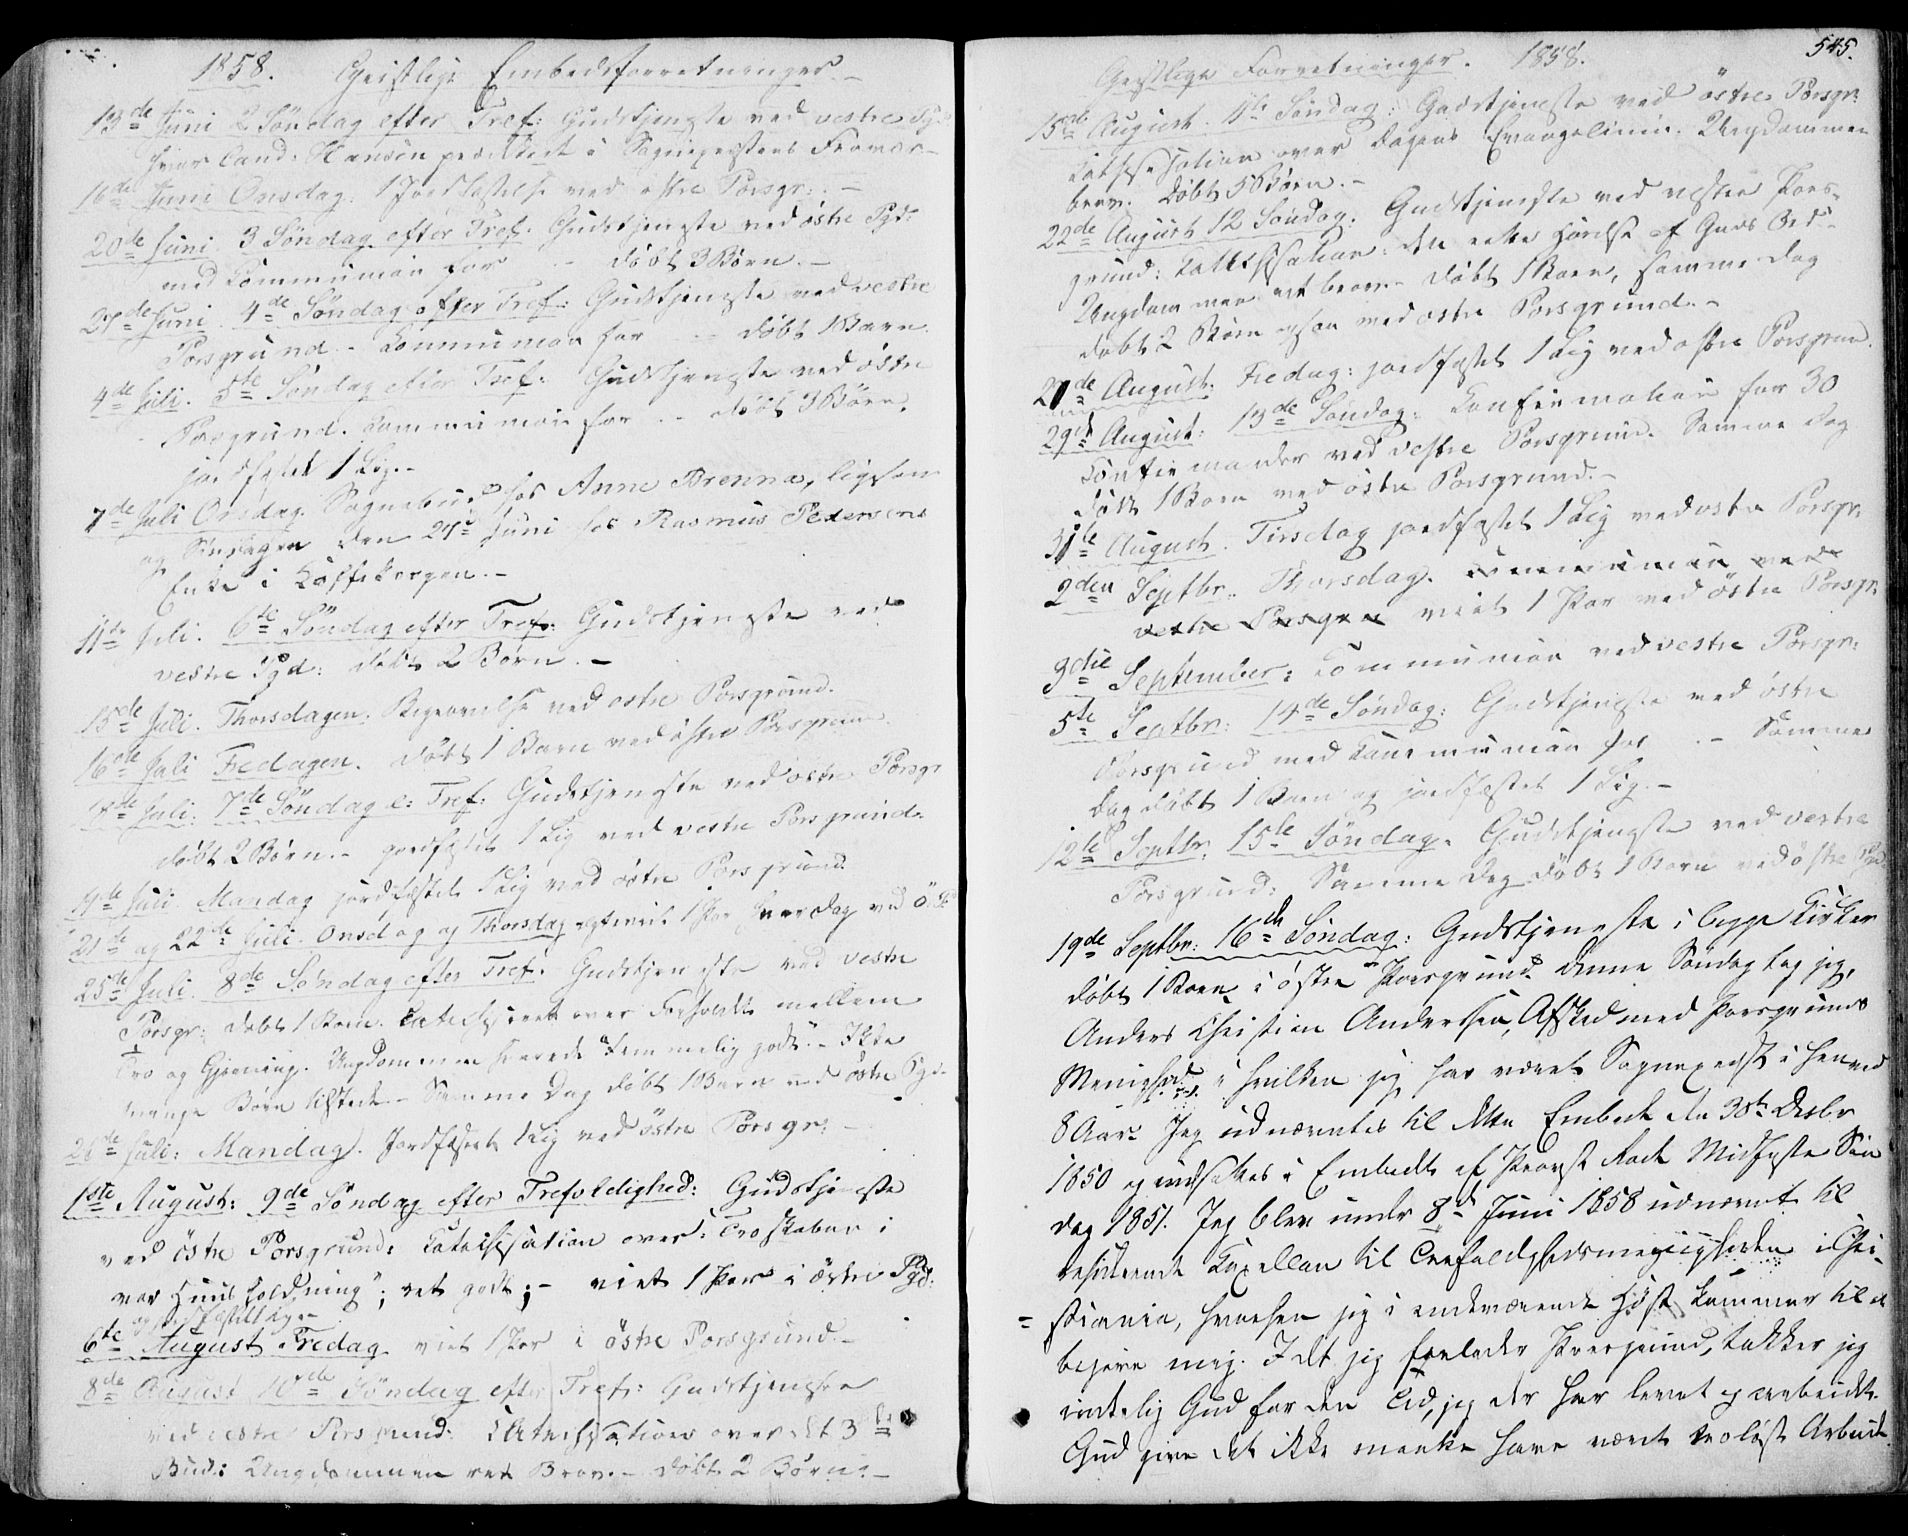 1858. Geistlige Embedsforretninger.-
13de Juni 2 Söndag efter Tref: Gudstjeneste ved vestre Pgd
hvor Cand: Hansen prædiket i Sognepræstens Fravær-
16de Juni Onsdag. 1 Jordfæstelse ved østre Porsgr: -
20de Juni 3 Söndag efter Tref. Gudstjeneste ved østre Pgd:
med Communion for - döbt 3 Børn. -
27de Juni. 4de Söndag efter Tref: Gudstjeneste ved vestre
Porsgrund. - Communion for - döbt 1 Barn.
4de Juli. 5te Söndag efter Tref: Gudstjeneste ved östre
Porsgrund. Communion for - döbt 3 Börn.
jordfæstet 1 Lig.-
7de Juli Onsdag. Sognebud hos Anne Brenna, ligesom
og Søndagen den 27de Juni hos Rasmus Pedersens
Enke i
11te Juli. 6te Söndag efter Tref: Gudstjeneste ved
vestre Pgd: döbt 2 Börn. -
15de Juli. Thorsdagen. Begravelse ved østre Porsgrund.
16de Juli Fredagen. döbt 1 Barn ved østre Porsgrund.
18de Juli. 7de Söndag e: Tref: Gudstjeneste ved östre Porsgr
döbt 2 Börn.- jordfæstet 1 Lig ved vestre Porsgrund.
19de Juli. Mandag jordfæstet 1 Lig ved østre Porsgrund
21de og 22de Juli. Onsdag og Thorsdag egteviet 1 Par hver Dag ved Ö. P
25de Juli. 8de Söndag efter Tref. Gudstjeneste ved vestre
Porsgr: döbt 1 Barn. Catechiseret over Forholdet mellem
Tro og Gjerning. Ungdommen svarede temmelig godt.- Ikke
mange Börn tilstede.- Samme Dag döbt 1 Barn ved östre Pgd.
26de Juli: Mandag. Jordfæstet 1 Lig ved östre Porsgr: -
1ste August: 9de Söndag efter Trefoldighed: Gudstjeneste
ved östre Porsgrund: Catechisation over: "Troskaben i
vor Huusholdning"; ret godt; - viet 1 Par i östre Pgd.
og jordfæstet 1 Lig.-
6te August Fredag viet 1 Par i östre Porsgrund.-
8de August 10de Söndag efter Tref: Gudstjeneste
ved vestre Porsgrund: Catechisation over det 3de
Bud: Ungdommen ret Brav.- döbt 2 Börn.-
545.
Geistlige Forretninger. 1858.
15de August. 11te Söndag: Gudstjeneste ved östre Porsgr:
Catechisation over Dagens Evangelium. Ungdommen
brav. Döbt 5 Børn.-
22de August 12 Söndag: Gudstjeneste ved vestre Pors-
grund: Catechisation: den rette Hørelse af Guds Ord.
Ungdommen ret brav.- Døbt 1 Barn, samme Dag
døbt 2 Børn ogsaa ved østre Porsgrund.-
27de August. Fredag: jordfæstet 1 Lig ved østre Porsgrund.
29de August: 13de Söndag: Confirmation for 30
Confirmander ved vestre Porsgrund. Samme Dag
døbt 1 Barn ved østre Porsgrund.-
31te August. Tirsdag jordfæstet 1 Lig ved østre Porsgr:
2den Septbr. Thorsdag. Communion ved
vestre Porsgrun viet 1 Par ved östre Porsgr:
3die September: Communion ved vestre Porsgr:
5te Septbr: 14de Söndag: Gudstjeneste ved östre
Porsgrund med Communion for - Samme
Dag döbt 1 Barn og jordfæstet 1 Lig.-
12te Septbr: 15te Söndag. Gudstjeneste ved vestre
Porsgrund: Samme Dag döbt 1 Barn ved østre Pgd
19de Septbr: 16de Söndag: Gudstjeneste i begge Kirker
döbt 1 Barn i östre Porsgrund. Denne Söndag tog jeg,
Anders Christian Anderssen, Afsked med Porsgrunds
Menighed, i hvilken jeg har været Sognepræst i henved
8 Aar. Jeg udnævntes til dette Embede den 30te Decbr
1850 og indsattes i Embedet af Provst Rode Midfaste Søn
dag 1851. Jeg blev under 8de Juni 1858 udnævnt til
residerende Capellan til Trefoldighedsmenigheden i Chri-
stiania, hvorhen jeg i indeværende Høst kommer til at
begive mig. Idet jeg forlader Porsgrund, takker jeg
inderlig Gud for den Tid, jeg der har levet og arbeidet.
Gud give det ikke maatte have været troløst Arbeide